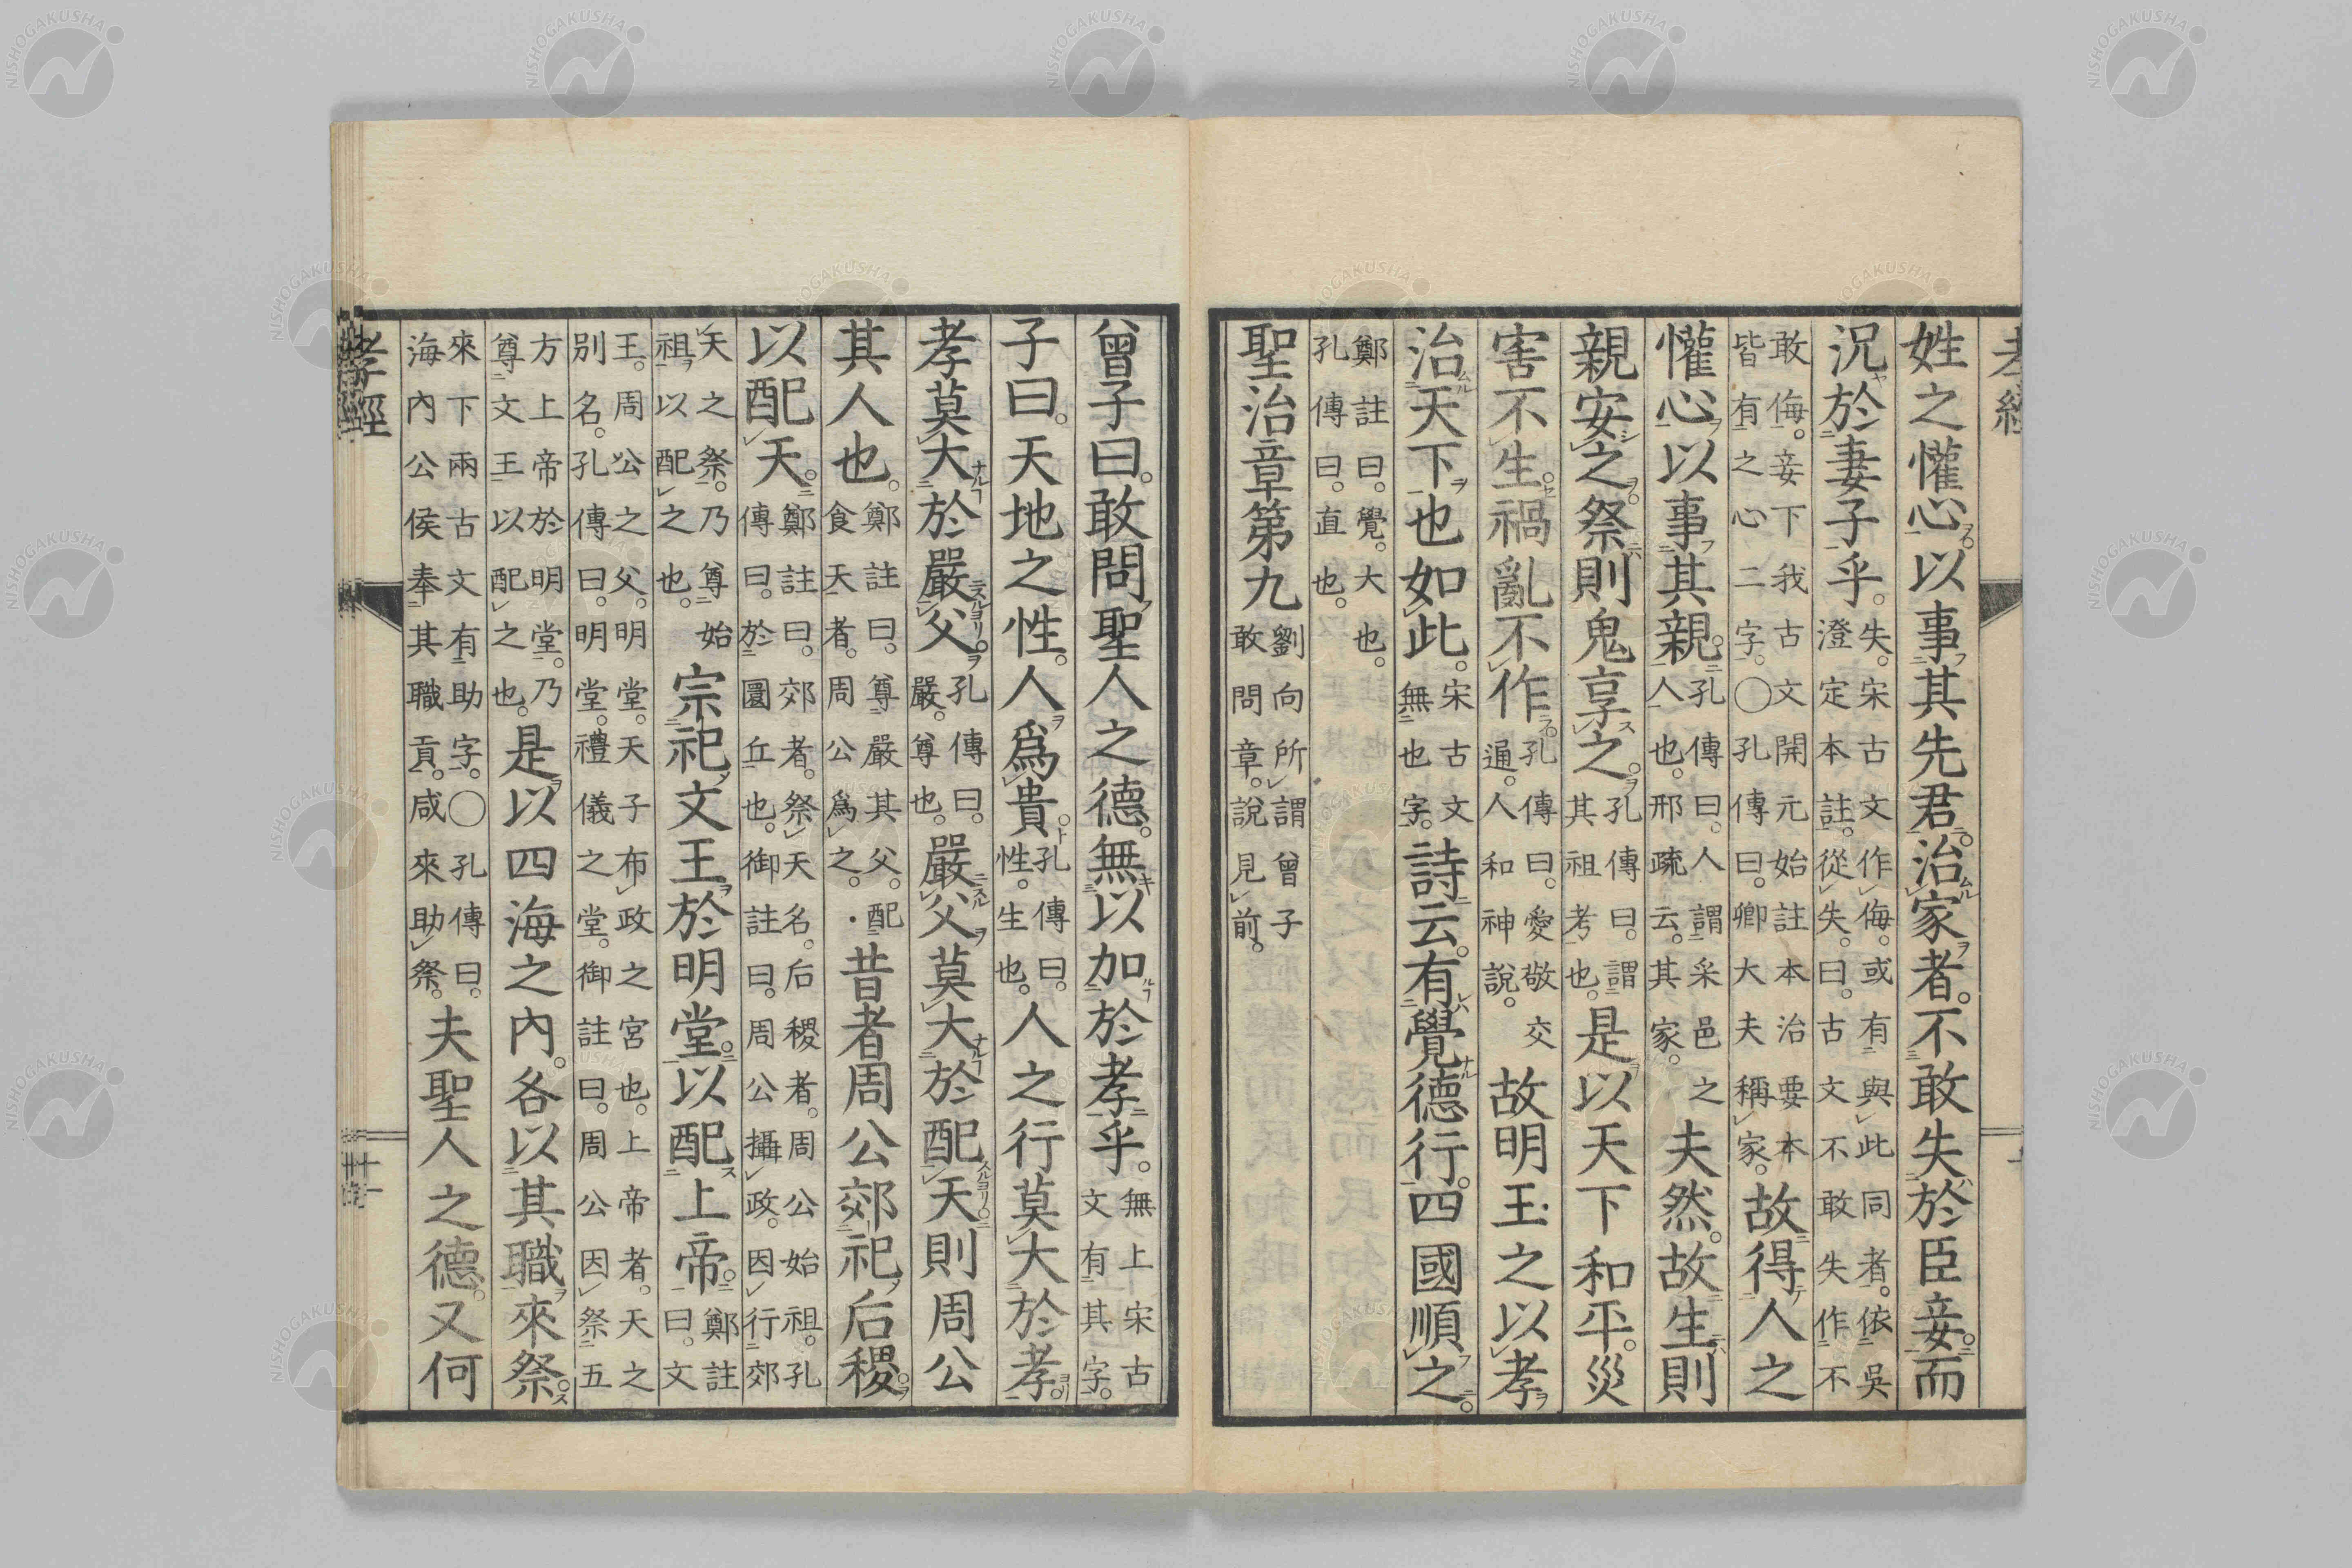 姓之懽心。以事其先君。治家者。不敢失於臣妾。而
況於妻子乎。失。宋古文作侮。或有與此同者。依吳
澄定本註。從失。曰。古文不敢失作不
敢侮。妾下我古文開元始註本治要本
皆有之心二字。○孔傳曰。卿大夫稱家。故得人之
懽心。以事其親。孔傳曰。人謂采邑之
人也。邢疏云。其家。夫然。故生則
親安之。祭則鬼享之。孔傳曰。謂
其祖考也。是以天下和平。災
害不生。禍亂不作。孔傳曰。愛敬交
通。人和神說。故明王之以孝
治天下也如此。宋古文
無也字。詩云。有覺德行。四國順之。
鄭註曰。覺。大也。
孔傳曰。直也。
聖治章第九 劉向所謂曾子
敢問章。說見前。
曾子曰。敢問聖人之德。無以加於孝乎。無上宋古
文有其字。
子曰。天地之性。人爲貴。孔傳曰。
性。生也。人之行莫大於孝。
孝莫大於嚴父。孔傳曰。
嚴。尊也。嚴父莫大於配天。則周公
其人也。鄭註曰。尊嚴其父。配
食天者。周公爲之。昔者周公郊祀后稷。
以配天。鄭註曰。郊者。祭天名。后稷者。周公始祖。孔
傳曰。於圜丘也。御註曰。周公攝政。因行郊
天之祭。乃尊始
祖以配之也。宗祀文王於明堂。以配上帝。鄭註
曰。文
王。周公之父。明堂。天子布政之宮也。上帝者。天之
別名。孔傳曰。明堂。禮儀之堂。御註曰。周公因祭五
方上帝於明堂。乃
尊文王以配之也。是以四海之內。各以其職來祭。
來下兩古文有助字。○孔傳曰。
海內公侯奉其職貢。咸來助祭。夫聖人之德。又何
孝經
NISHOGAKUSHA